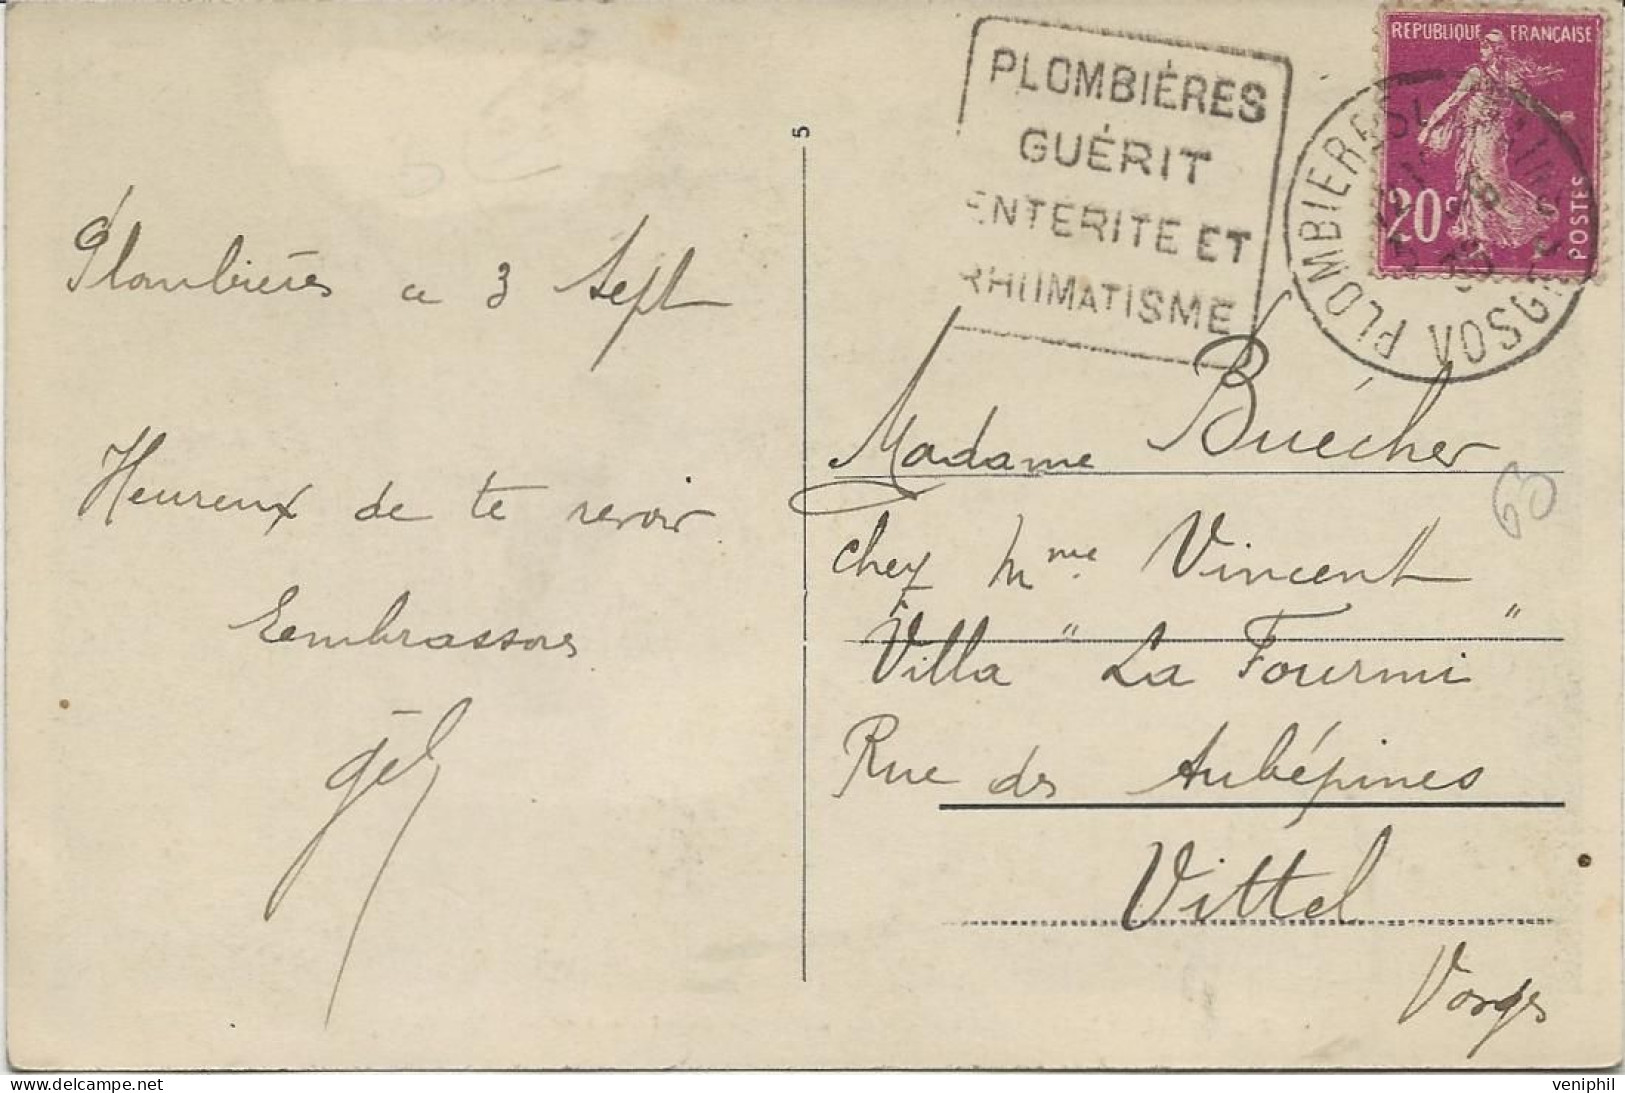 Plombières ce 3 Sept
Heureux de te revoir
Eembrassons
gél
5
PLOMBIÈRES
GUÉRIT
ENTÉRITE ET
RHUMATISME
REPUBLIQUE FRANÇAISE
20c
POSTES
PLOMBIERES
VOSGES
Madame Buécher
chez Mme Vincent
Villa "La Fourmi"
Rue des Aubépines
Vittel
Vosges
63
veniphil